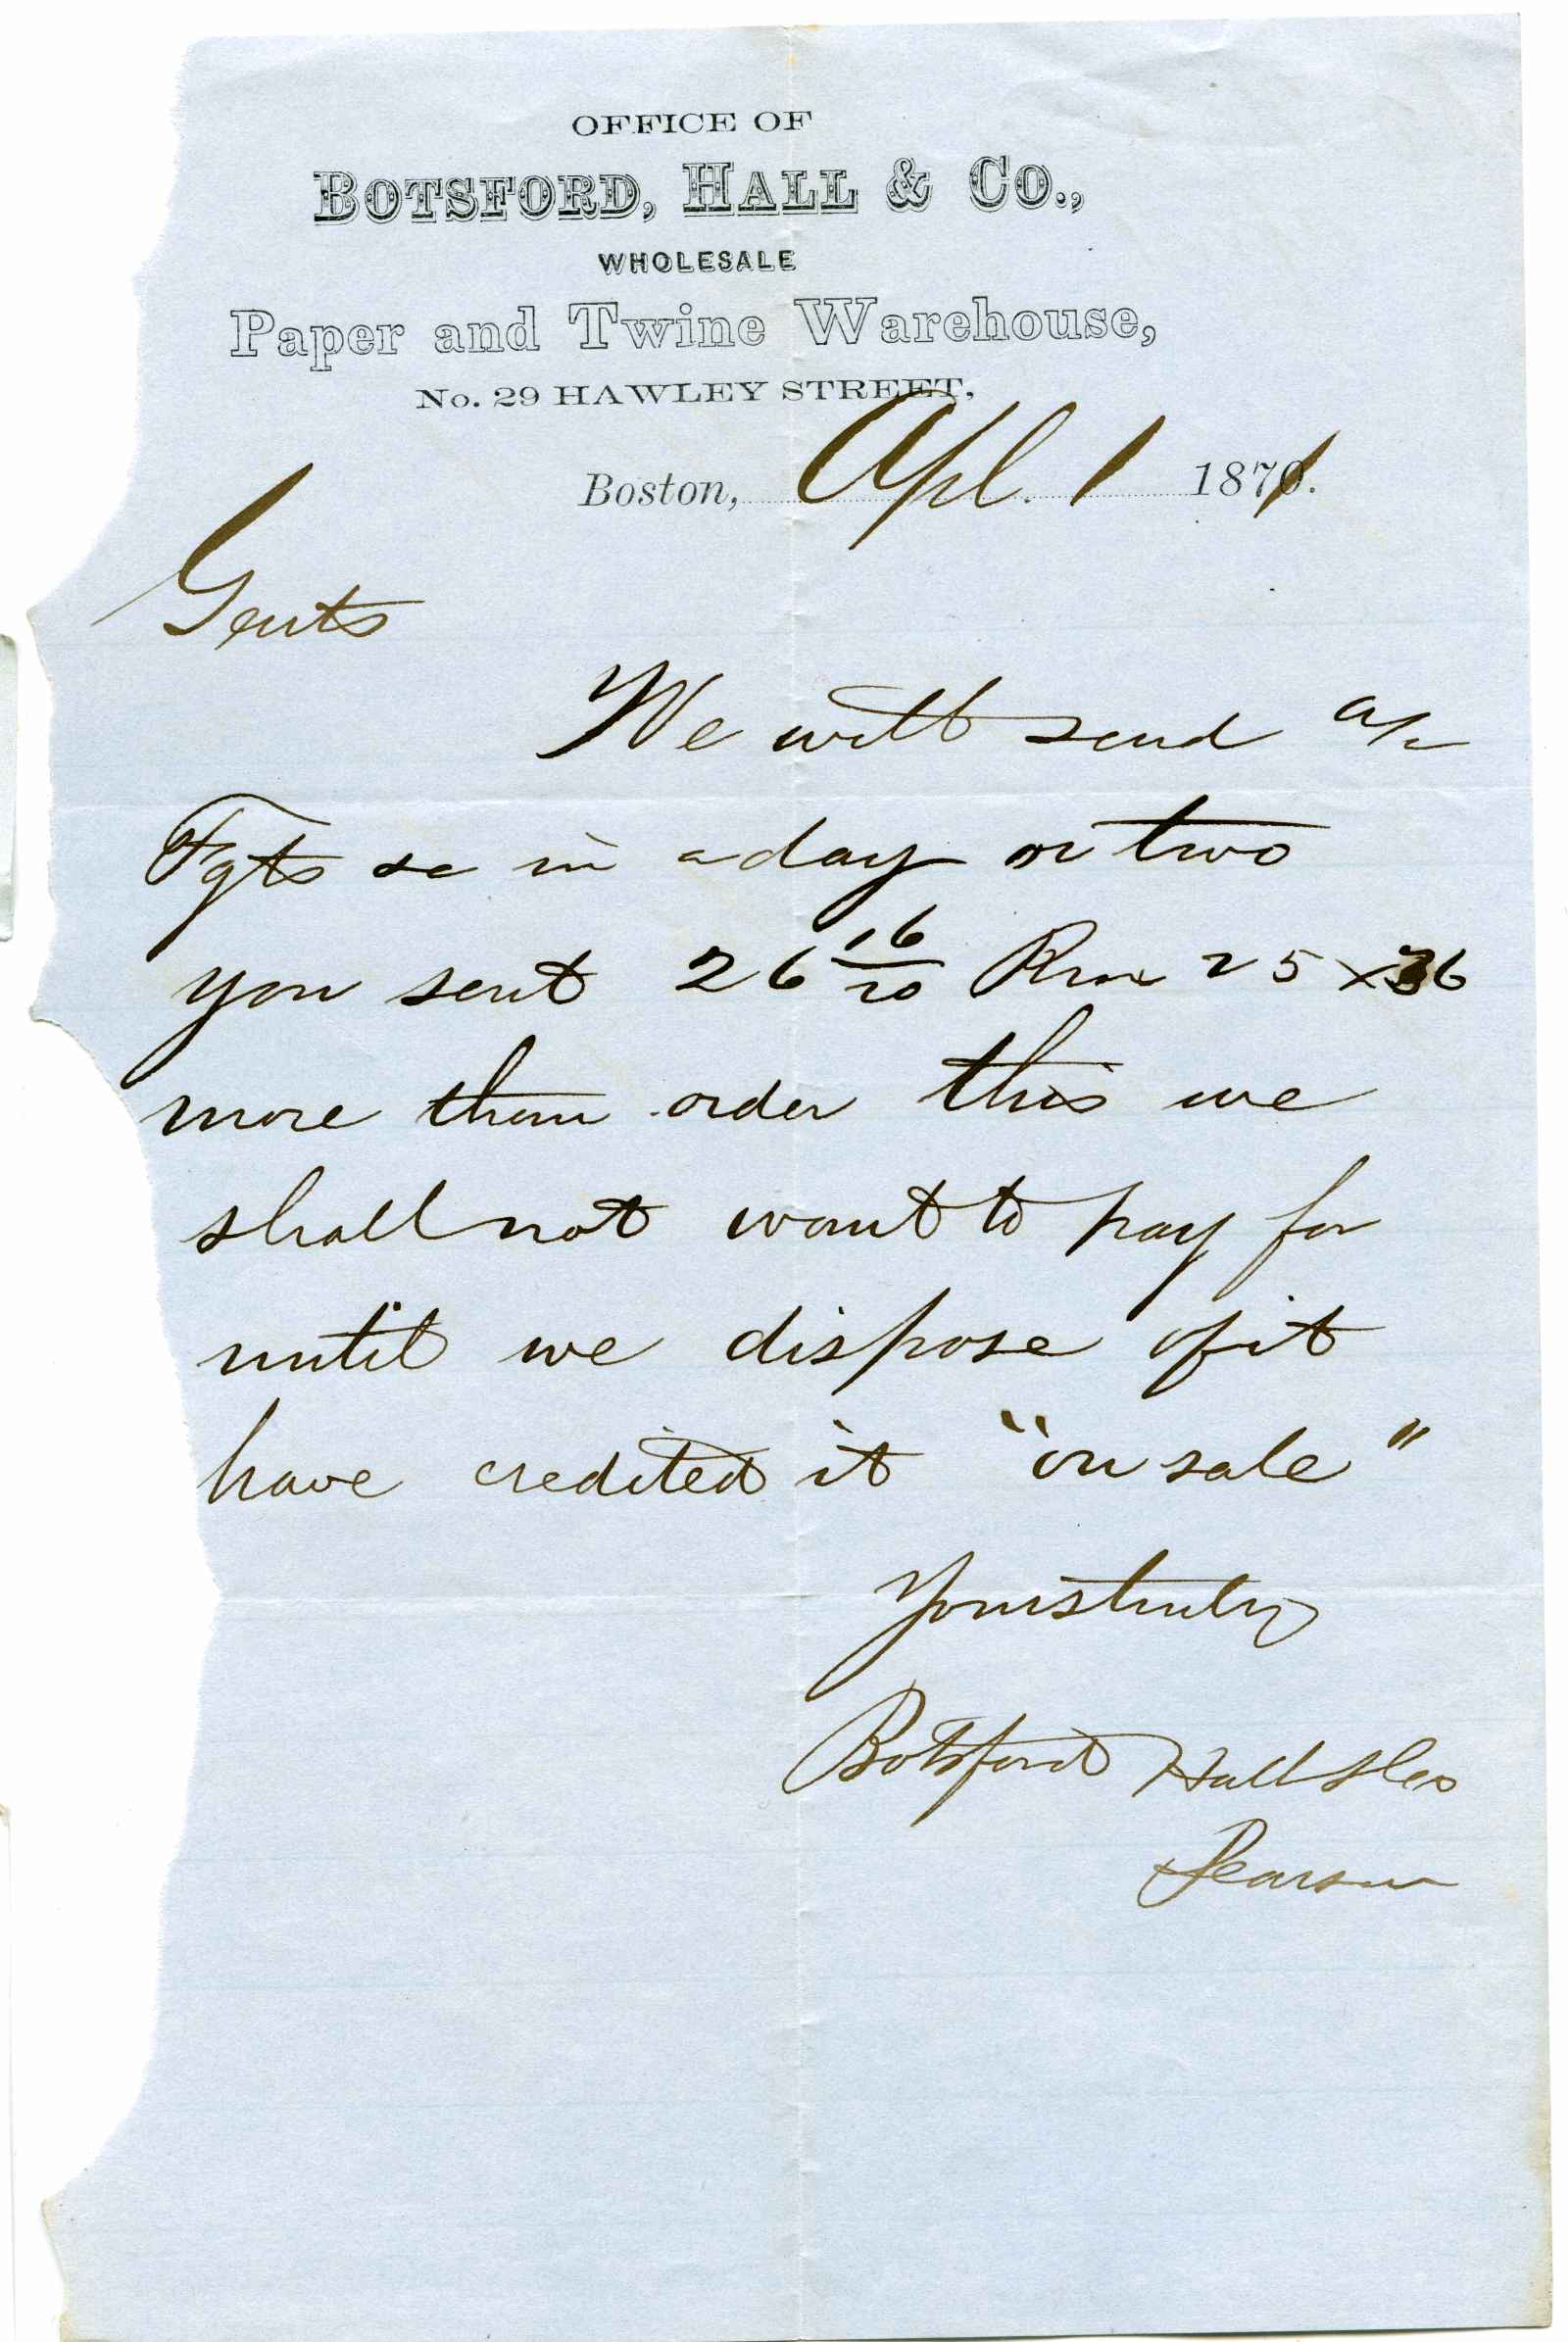 OFFICE OF
BOTSFORD, HALL & CO.,
WHOLESALE
Paper and Twine Warehouse,
No. 29 HAWLEY STREET,
Boston, Apl. 1 1871.
Gents
We will send a/c
Fgts &c in a day or two
you sent 26 16/20 Rm 25 x 36
more than order this we
shall not want to pay for
until we dispose of it
have credited it "on sale"
Yours truly
Botsford Hall & Co
Pearson